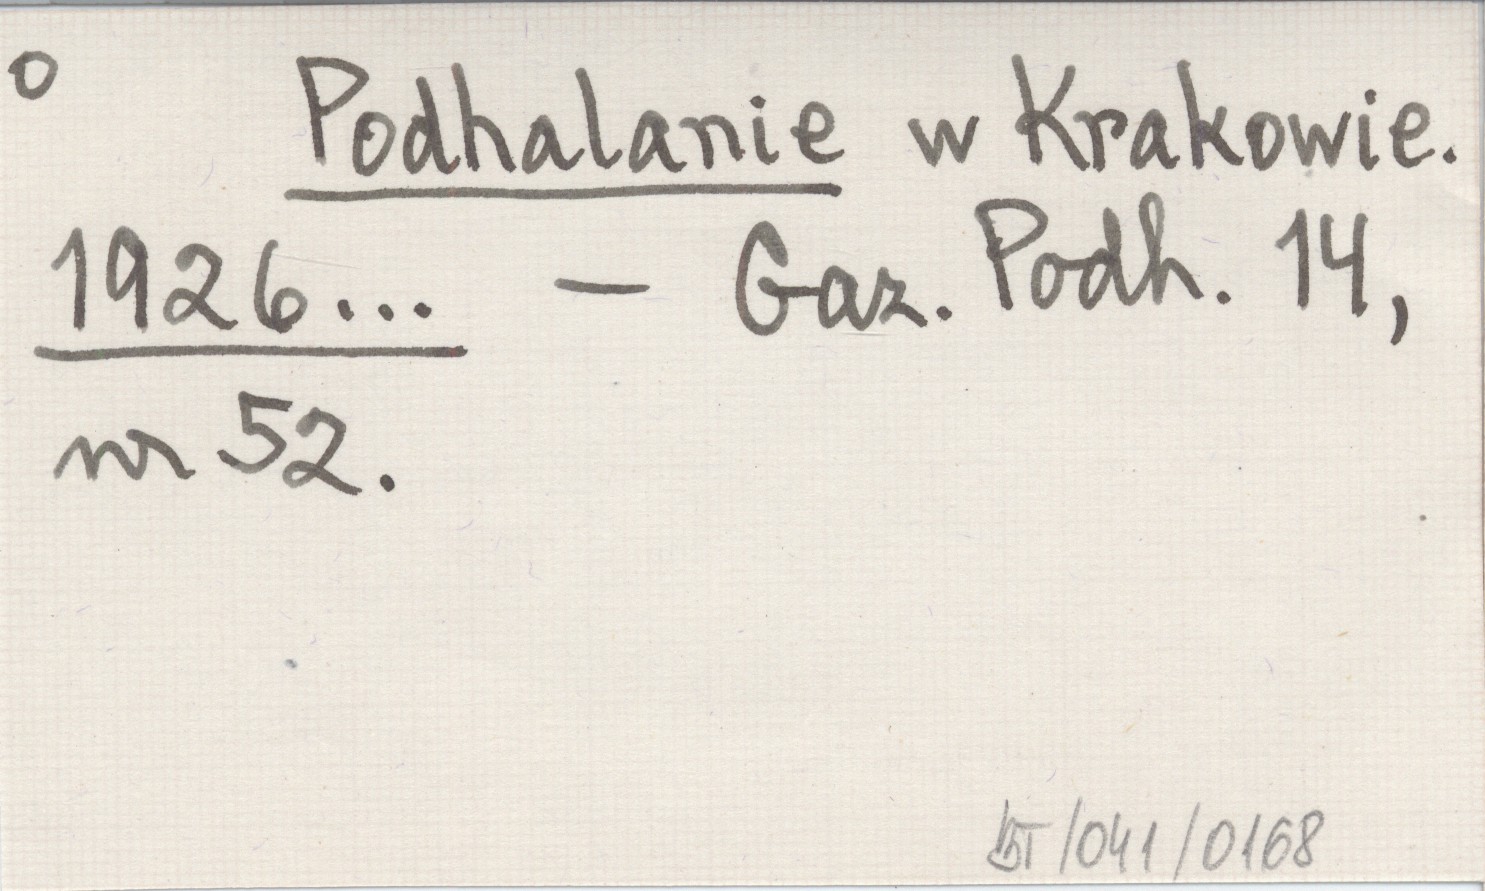 o Podhalanie w Krakowie.
1926... — Gaz. Podh. 14,
nr 52.
/041/0168